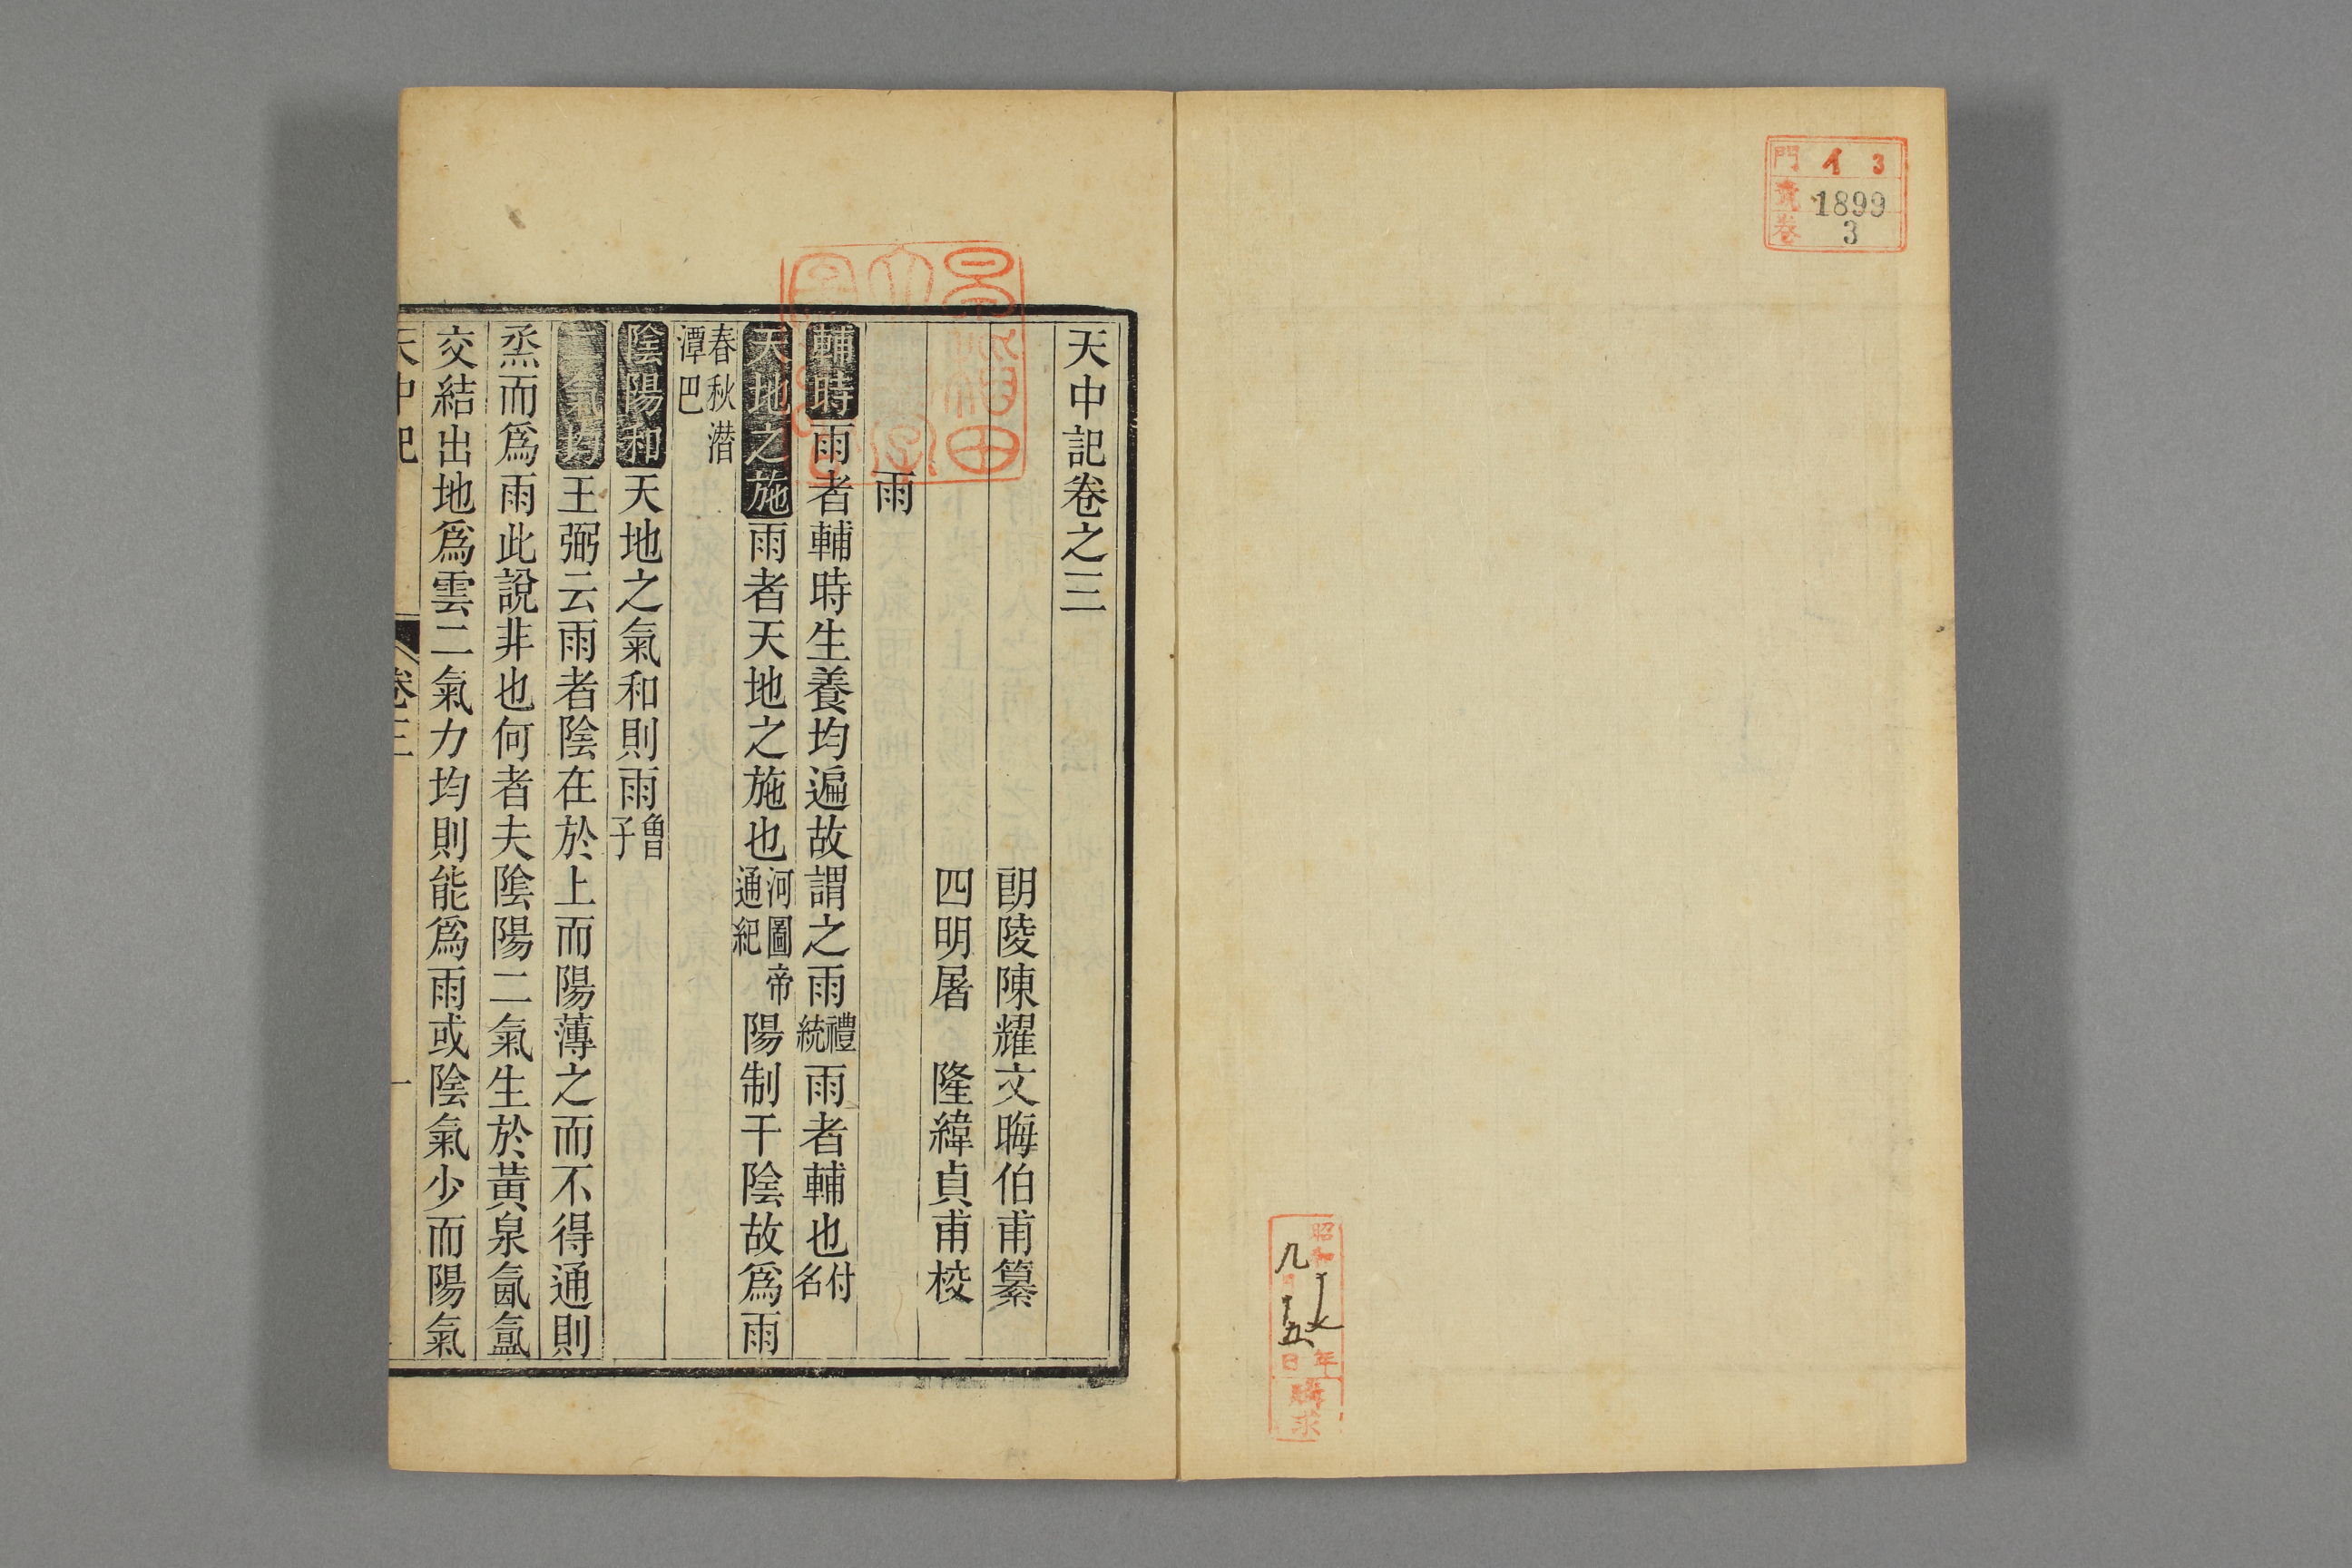 門 イ 3
號 1899
卷 3
昭和十七年
九月十五日
購求
天中記卷之三
朗陵陳耀文晦伯甫纂
四明屠 隆緯貞甫校
雨
輔時雨者輔時生養均遍故謂之雨禮統雨者輔也付名
天地之施雨者天地之施也河圖帝通紀陽制于陰故爲雨
春秋潜潭巴
陰陽和天地之氣和則雨曾子
二氣均王弼云雨者陰在於上而陽薄之而不得通則
烝而爲雨此說非也何者夫陰陽二氣生於黃泉氤氳
交結出地爲雲二氣力均則能爲雨或陰氣少而陽氣
天中記 卷三 一